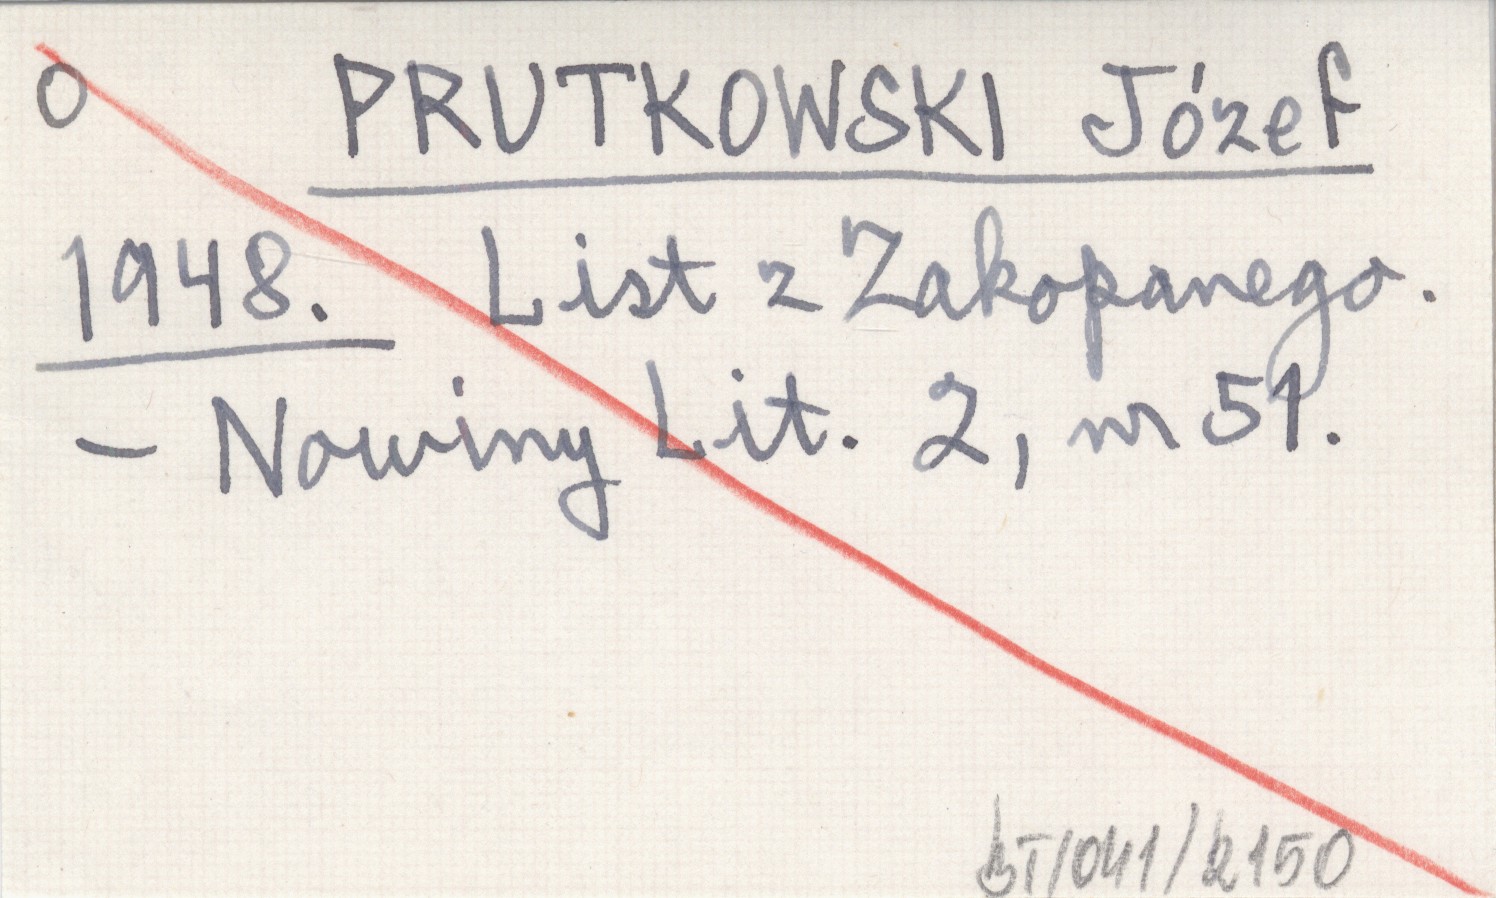 O PRUTKOWSKI Józef
1948. List z Zakopanego.
– Nowiny Lit. 2, nr 51.
BT/041/2150